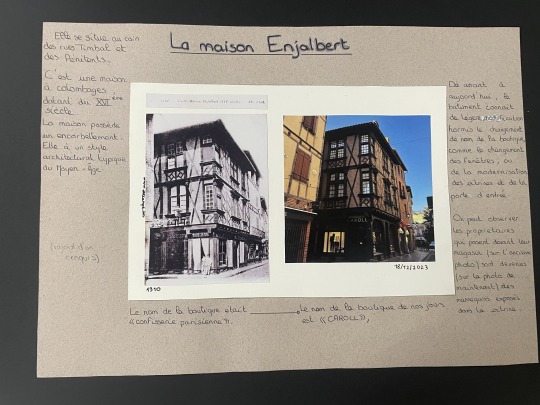 La maison Enjalbert
Elle se situe au coin
des rues Timbal et
des Penitents.
C'est une maison
à colombages
datant du XVI ème
siècle.
La maison possède
un encorbellement.
Elle à un style
architectural typique
du Moyen-Age
(rajout d'un
croquis)
1910
18/12/2023
CAROLL
De avant à
aujourd'hui, le
bâtiment connait
de légère modification
hormis le changement
de nom de la boutique
comme le changement
des fenêtres, ou
de la modernisation
des vitrines et de la
porte d'entrée.
On peut observer
les propriétaires
qui posent devant leur
magasin (sur l'ancienne
photo) sont devenues
(sur la photo de
maintenant) des
mannequins exposés
dans la vitrine.
Le nom de la boutique était
"confiserie parisienne".
Le nom de la boutique de nos jours
est "CAROLL",